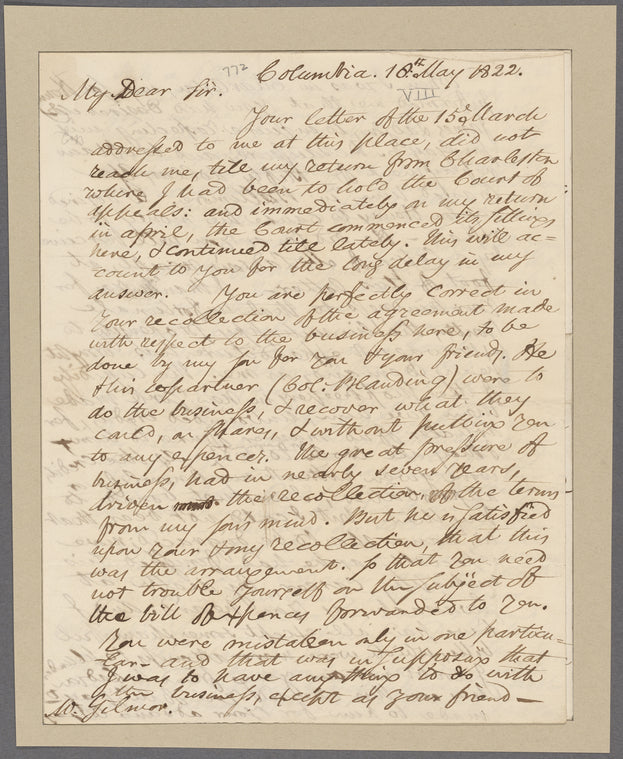 772
Columbia. 18th May 1822.
VIII
My Dear Sir.
Your letter of the 15th March
addressed to me at this place, did not
reach me, till my return from Charleston
where I had been to hold the Court of
Appeals: and immediately on my return
in april, the Court commenced its sittings
here, & continued till lately. This will ac=
count to you for the long delay in my
answer. You are perfectly correct in
your recollection of the agreement made
with respect to the business here, to be
done by my son for you & your friends. He
& his copartner (Col: Blanding) were to
do the business, & recover what they
could, on shares, & without putting you
to any expences. The great pressure of
business, had in nearly seven years,
driven the recollection, of the terms
from my son's mind. But he is satisfied
upon your & my recollection, that this
was the arrangement. So that you need
not trouble yourself on the subject of
the bill of expences forwarded to you.
You were mistaken only in one particu=
lar - and that was in supposing that
I was to have any thing to do with
the business, except as your friend -
Mr Gilmor.